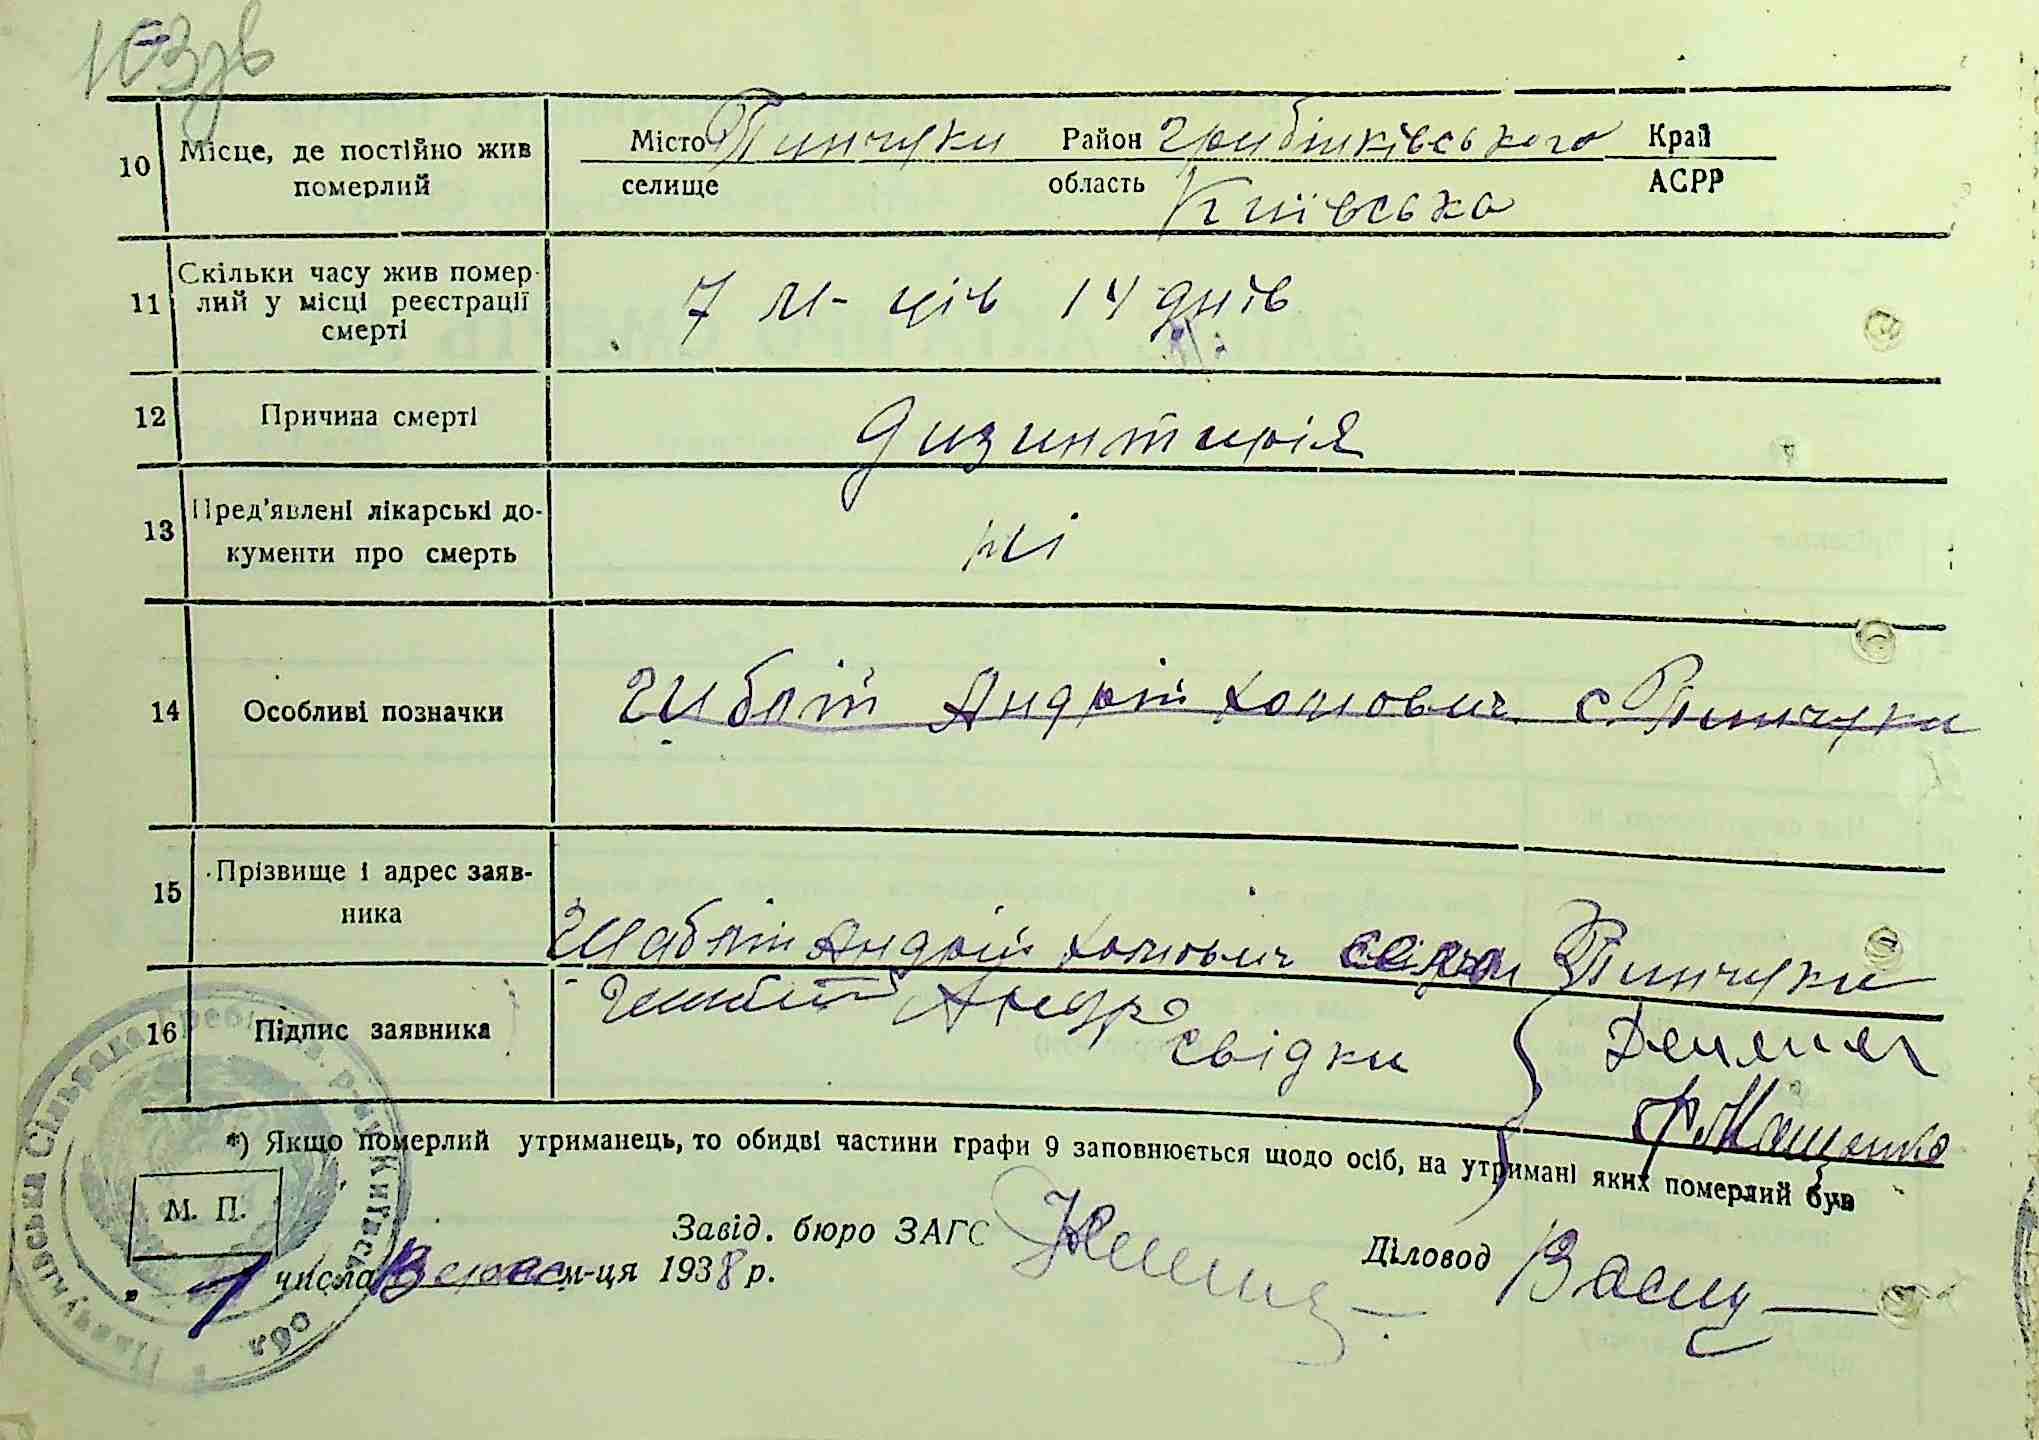 103зв
10 Місце, де постійно жив померлий Місто Пинчуки Район Гребінківського Край
селище область Київська АСРР
11 Скільки часу жив помер-
лий у місці реєстрації
смерті 7 м-ців 14 днів
12 Причина смерті дизинтирія
13 Пред'явлені лікарські до-
кументи про смерть ні
14 Особливі позначки Андрій Хомович с. Пинчуки
15 Прізвище і адрес заяв-
ника Андрій Хомович село Пинчуки
16 Підпис заявника Андр
свідки
*) Якщо померлий утриманець, то обидві частини графи 9 заповнюється щодо осіб, на утримані яких померлий був
М. П.
Завід. бюро ЗАГС
Діловод
1 числа м-ця 1938 р.
Пінчуківська Сільрада Гребінк. р-ну Київськ. обл.